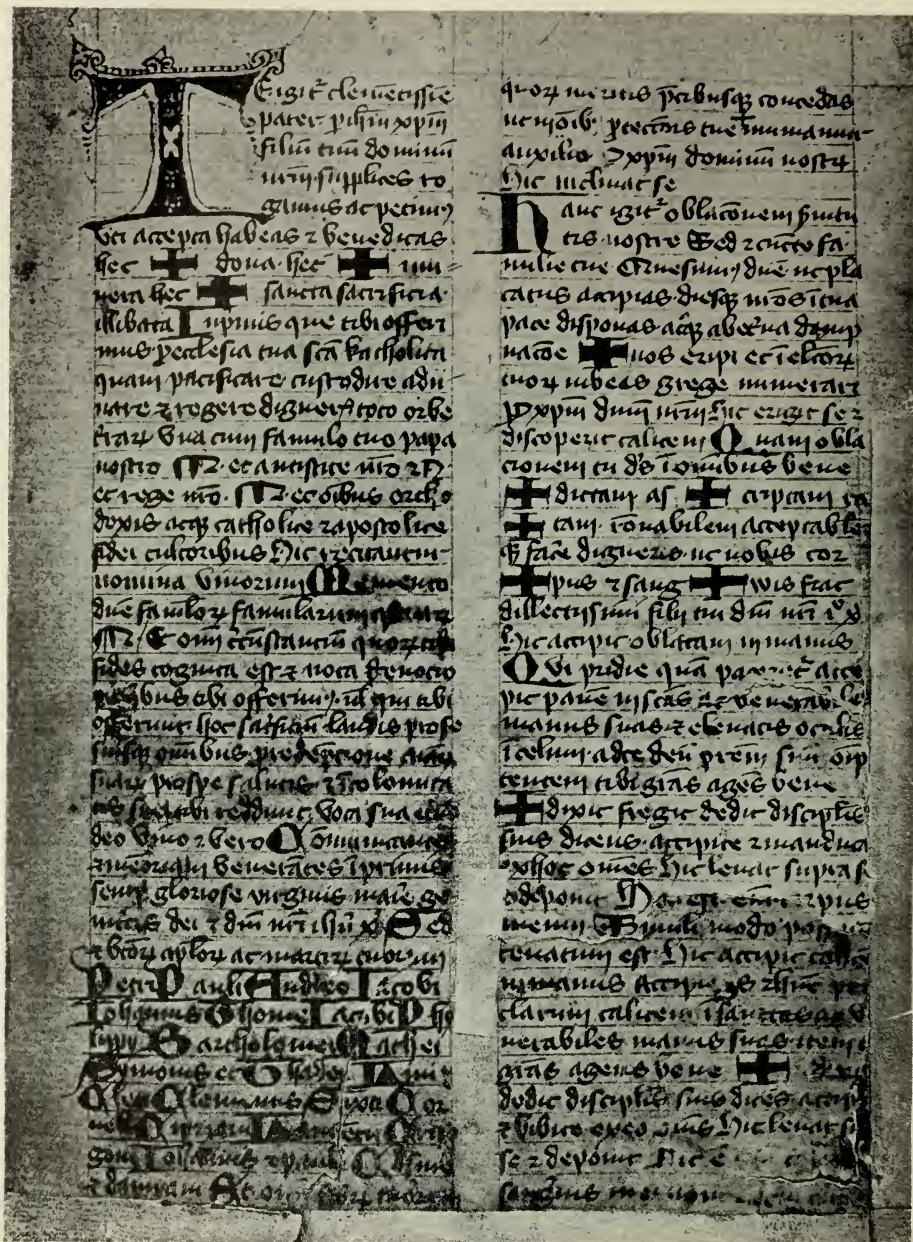 Te igit᷑ clemētissīe
pater p ih̄m xp̄m
filiū tuū dominū
nr̄m supplices ro
gamus ac petimꝰ
Vti accepta habeas ⁊ benedicas
hec ✠ dona hec ✠ mu
nera hec ✠ sancta sacrificia
illibata Inp̄mis que tibi offeri
mus p ecclesia tua scā katholica
quam pacificare custodire adu
nare ⁊ regere digner̄ toto orbe
t̄raꝝ Vna cum famulo tuo papa
nostro N. et antistite nr̄o ⁊ N.
et rege nr̄o N. et oībus ortho
doxis atqꝫ catholice ⁊ apostolice
fidei cultoribus Hic recitant᷑
nomina vivorum Memento
dn̄e famuloꝝ famularum
N. Et oīm c̄cūstanciū quoꝝ tibi
fides cognita est ⁊ nota devocio
p quibus tibi offerimꝰ vl̄ qui tibi
offerunt hoc sac̄ficiū laudis p se
suisqꝫ om̄ibus p redēpcione aīaꝝ
suaꝝ p spe salutis ⁊ īcolomita
tis sue tibi reddunt vota sua et̄no
deo vivo ⁊ vero Cōmunicantes
⁊ memoriam venerātes īprimis
semp gloriose virginis marie ge
nit̄cis dei ⁊ dn̄i nr̄i ih̄u xp̄i Sed
⁊ btōꝝ ap̄loꝝ ac martirū tuorum
Petri Pauli Andree Iacobi
Iohannis Thome Iacobi Phi
lippi Bartholomei Mathei
Symonis et Thadei Lini
Cleti Clementis Syxti Cor
neli Cipriani Laurēcii Criso
goni Iohānis ⁊ pauli Cosme
⁊ damiani Et oīm scōꝝ tuoꝝ
quoꝝ meritis p̄cibusqꝫ concedas
ut in oībꝫ ꝓtectōis tue muniamur
auxilio P xp̄m dominū nostꝝ
Hic inclinat se
Hanc igit᷑ oblacōnem s̄vitu
tis nostre Sed ⁊ cūcte fa
milie tue Quesumꝰ dn̄e ut pla
catus accipias diesqꝫ nr̄os ī tua
pace disponas atqꝫ ab et̄na damp
nacōe ✠ nos eripi et ī el̄coꝝ
tuoꝝ iubeas grege numerari
P xp̄m dn̄m nr̄m Hic erigit se ⁊
discoperit calicem Quam obla
cionem tu ds̄ ī omnibus bene
✠ dictam as ✠ criptam ra
✠ tam rōnabilem acceptabilē
qꝫ fac̄e digneris ut nobis cor
✠ pus ⁊ sang ✠ wis fiat
dillectissimi filii tui dn̄i nr̄i
Hic accipit oblatam in manus
Qui pridie quā pateret᷑ acce
pit panē in scās ac venerabiles
manus suas ⁊ elevatis oculis
ī celum ad te deū pr̄em suū oīp
tentem tibi grās agēs bene
✠ dixit fregit dedit disciplīs
suis dicens accipite ⁊ mandu
ex hoc om̄es Hic levat supra se
⁊ deponit Hoc est enī corpus
meum Simili modo postquā
cenatum est Hic accipit calicē
in manus Accipiēs ⁊ hūc pre
clarum calicem ī sanctas ac ve
nerabiles manus suas item
grās agens bene ✠ dixit
dedit disciplīs suis dicēs accipite
⁊ bibite ex eo om̄s Hic levat su
se ⁊ deponit Hic ē
sanguinis mei novi